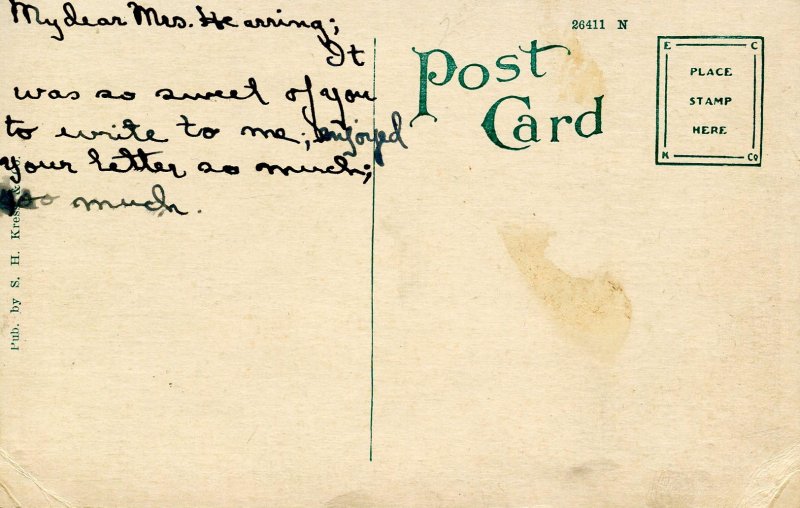 My dear Mrs. Hearring;
It
was so sweet of you
to write to me; enjoyed
your letter so much;
so much.
Pub. by S. H. Kress & Co.
Post
Card
26411 N
E C
PLACE
STAMP
HERE
K Co